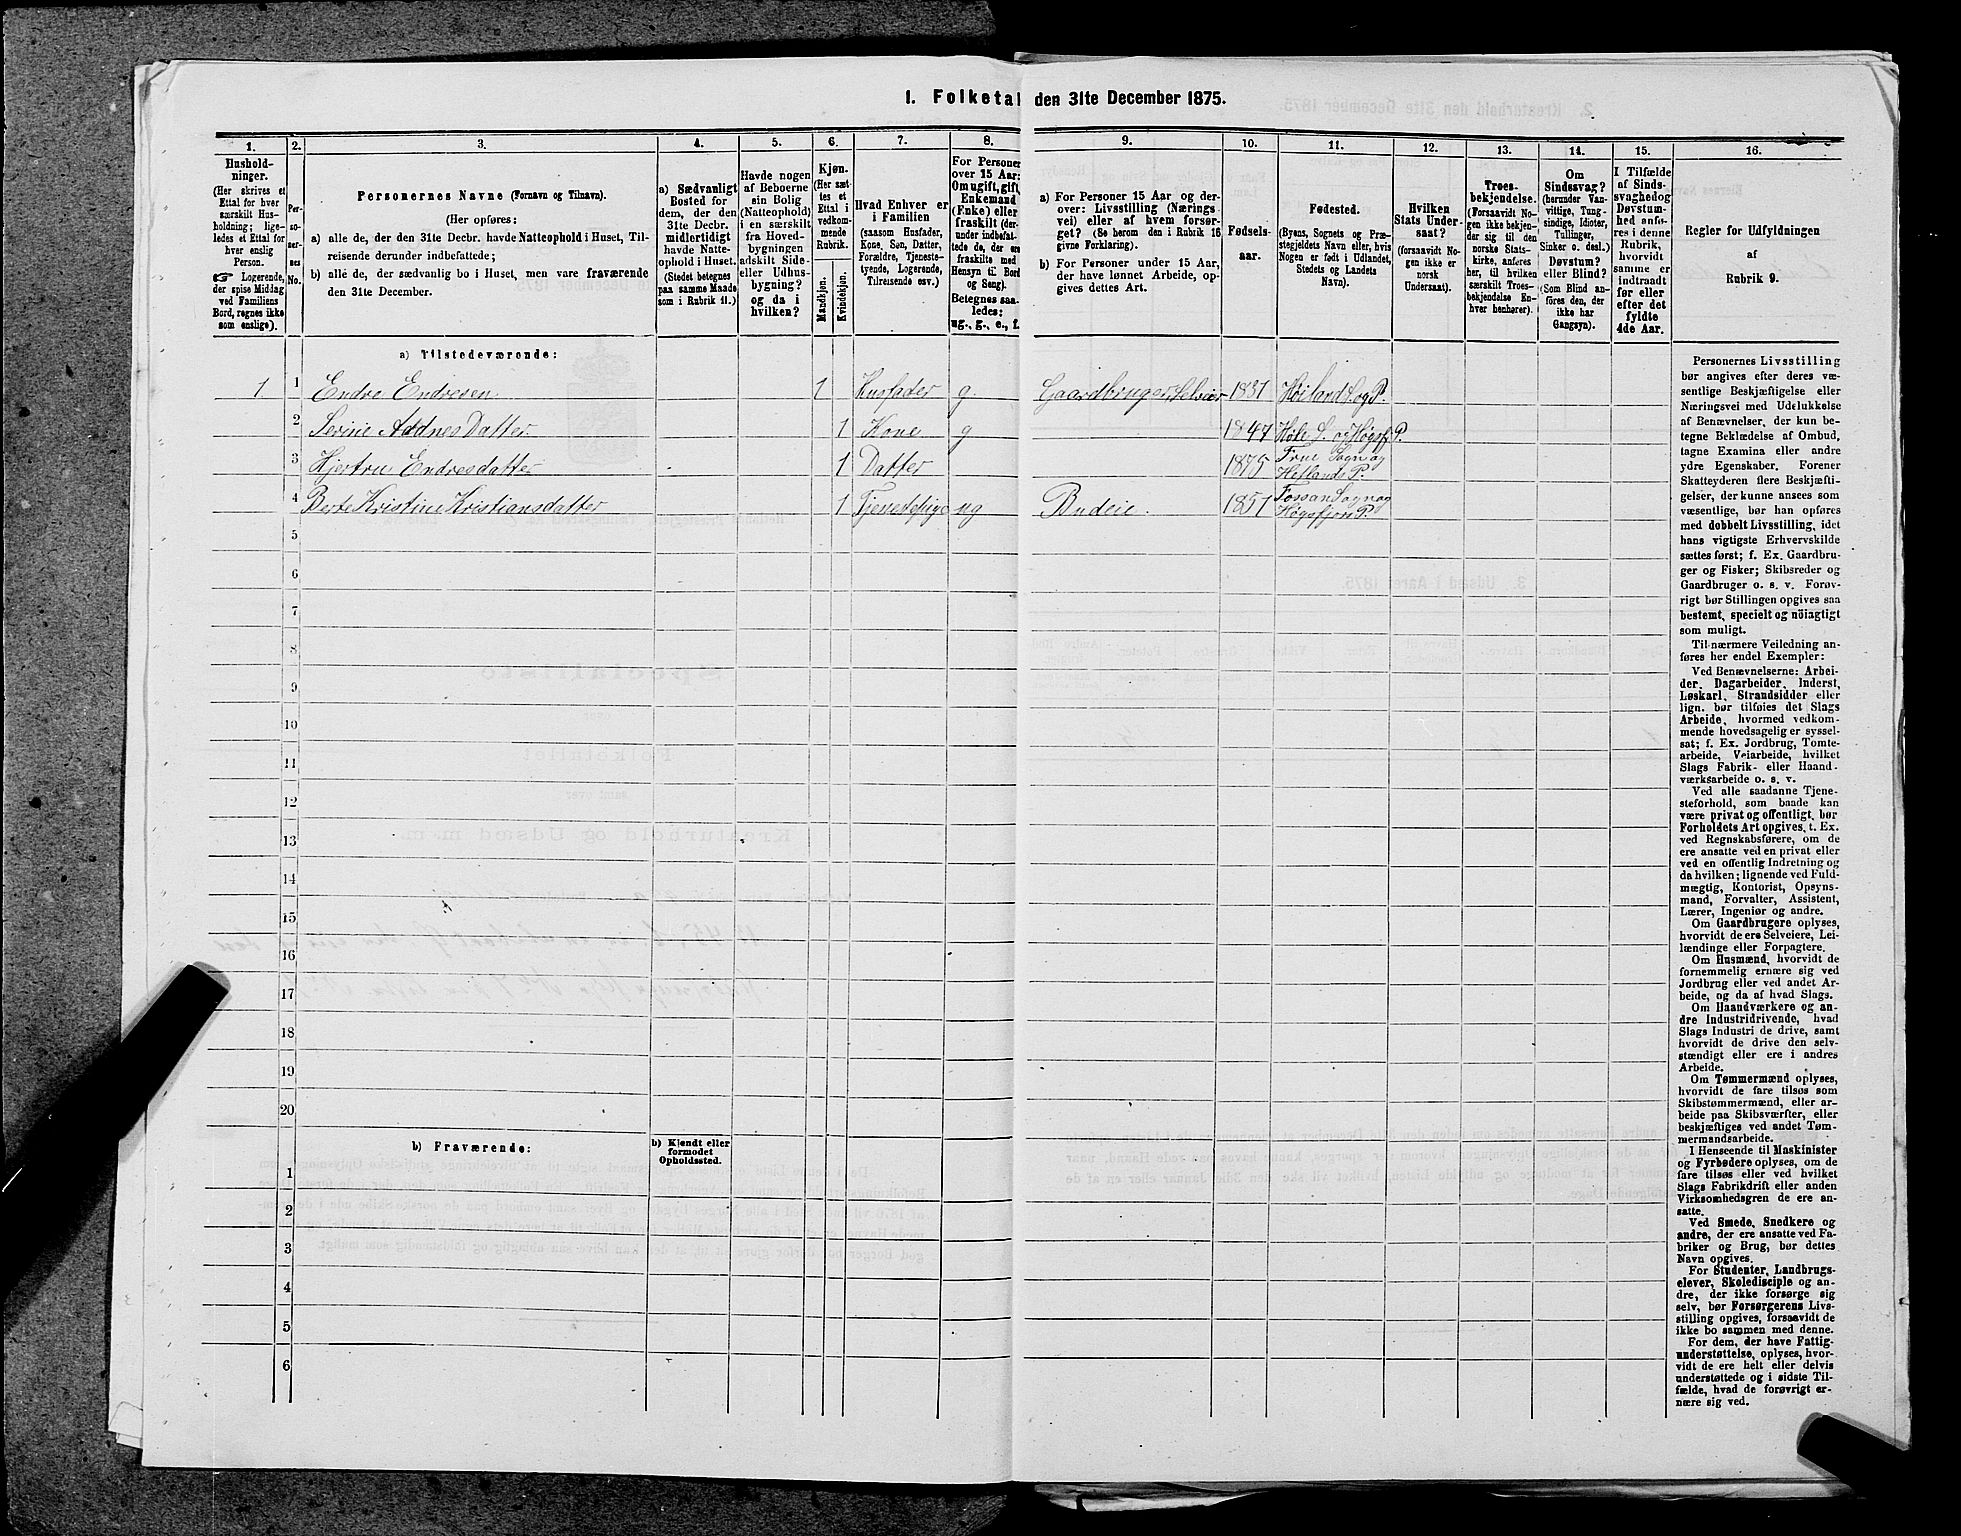 1. Folketal den 31te December 1875.
1. 2. 3. 4. 5. 6. 7. 8. 9. 10. 11. 12. 13. 14. 15. 16.
Hushold-
ninger.
(Her skrives et
Ettal for hver
særskilt Hus-
holdning; lige-
ledes et Ettal for
hver enslig
Person.
☞ Logerende,
der spise Middag
ved Familiens
Bord, regnes ikke
som enslige).
Per-
so-
ner-
nes
No.
Personernes Navne (Fornavn og Tilnavn).
(Her opføres:
a) alle de, der den 31te Decbr. havde Natteophold i Huset, Til-
reisende derunder indbefattede;
b) alle de, der sædvanlig bo i Huset, men vare fraværende
den 31te December.
a) Sædvanligt
Bosted for
dem, der den
31te Decbr.
midlertidigt
havde Natte-
ophold i Huset.
(Stedet betegnes
paa samme Maade
som i Rubrik 11.)
Havde nogen
af Beboerne
sin Bolig
(Natteophold)
i en særskilt
fra Hoved-
bygningen
adskilt Side-
eller Udhus-
bygning?
og da i
hvilken?
Kjøn.
(Her sæt-
tes et
Ettal i
vedkom-
mende
Rubrik.
Mandkjøn.
Kvindekjøn.
Hvad Enhver er
i Familien
(saasom Husfader,
Kone, Søn, Datter,
Forældre, Tjeneste-
tyende, Logerende,
Tilreisende osv.)
For Personer
over 15 Aar:
Om ugift, gift,
Enkemand
(Enke) eller
fraskilt (der-
under indbefat-
tede de, der ere
fraskilte med
Hensyn til Bord
og Seng).
Betegnes saa-
ledes:
ug., g., e., f.
a) For Personer 15 Aar og der-
over: Livsstilling (Nærings-
vei) eller af hvem forsør-
get? (Se herom den i Rubrik 16
givne Forklaring).
b) For Personer under 15 Aar,
der have lønnet Arbeide, op-
gives dettes Art.
Fødsels-
aar.
Fødested.
(Byens, Sognets og Præ-
stegjeldets Navn eller, hvis
Nogen er født i Udlandet,
Stedets og Landets
Navn).
Hvilken
Stats Under-
saat?
(forsaavidt No-
gen ikke er
norsk
Undersaat).
Troes-
bekjendelse.
(Forsaavidt No-
gen ikke bekjen-
der sig til den
norske Stats-
kirke, anføres
her, til hvilken
særskilt Troes-
bekjendelse En-
hver henhører).
Om
Sindssvag?
(herunder Van-
vittige, Tung-
sindige, Idioter,
Tullinger,
Sinker o. desl.)
Døvstum?
eller Blind?
(Som Blind an-
føres den, der
ikke har
Gangsyn).
I Tilfælde
af Sinds-
svaghed og
Døvstum-
hed anfø-
res i denne
Rubrik,
hvorvidt
samme er
indtraadt
før eller
efter det
fyldte
4de Aar.
Regler for Udfyldningen
af
Rubrik 9.
a) Tilstedeværende:
1. 1 Endre Endresen 1 Husfader g. Gaardbruger, Selveier 1831 Høiland S. og P.
2 Serine Adnes Datter. 1 Kone g 1847 Høle S. og Høgsfj P.
3 Hjertru Endresdatter 1 Datter 1875 Frue Sogn og
Hetlands P.
4 Berte Kristine Kristiansdatter 1 Tjenestepige ug Budeie. 1857 Fossan Sogn og
Høgsfjors P.
5
6
7
8
9
10
11
12
13
14
15
16
17
18
19
20
b) Fraværende:
b) Kjendt eller
formodet
Opholdssted.
1
2
3
4
5
6
Personernes Livsstilling
bør angives efter deres væ-
sentlige Beskjæftigelse eller
Næringsvei med Udelukkelse
af Benævnelser, der kun be-
tegne Beklædelse af Ombud,
tagne Examina eller andre
ydre Egenskaber. Forener
Skatteyderen flere Beskjæfti-
gelser, der kunne ansees som
væsentlige, bør han opføres
med dobbelt Livsstilling, idet
hans vigtigste Erhvervskilde
sættes først; f. Ex. Gaardbru-
ger og Fisker; Skibsreder og
Gaardbruger o. s. v. Forøv-
rigt bør Stillingen opgives saa
bestemt, specielt og nöiagtigt
som muligt.
Til nærmere Veiledning an-
føres her endel Exempler:
Ved Benævnelserne: Arbei-
der, Dagarbeider, Inderst,
Løskarl, Strandsidder eller
lign. bør tilføies det Slags
Arbeide, hvormed vedkom-
mende hovedsagelig er syssel-
sat; f. Ex. Jordbrug, Tomte-
arbeide, Veiarbeide, hvilket
Slags Fabrik- eller Haand-
værksarbeide o. s. v.
Ved alle saadanne Tjene-
steforhold, som baade kan
være privat og offentligt, bør
Forholdets Art opgives, t. Ex.
ved Regnskabsførere, om de
ere ansatte ved en privat eller
ved en offentlig Indretning og
da hvilken; lignende ved Fuld-
mægtig, Kontorist, Opsyns-
mand, Forvalter, Assistent,
Lærer, Ingeniør og andre.
Om Gaardbrugere oplyses,
hvorvidt de ere Selveiere, Lei-
lændinge eller Forpagtere.
Om Husmænd, hvorvidt de
fornemmelig ernære sig ved
Jordbrug eller ved andet Ar-
beide, og da af hvad Slags.
Om Haandværkere og an-
dre Industridrivende, hvad
Slags Industri de drive, samt
hvorvidt de drive den selv-
stændigt eller ere i andres
Arbeide.
Om Tømmermænd oplyses,
hvorvidt de fare tilsøs som
Skibstømmermænd, eller ar-
beide paa Skibsværfter, eller
beskjæftiges ved andet Tøm-
mermandsarbeide.
I Henseende til Maskinister
og Fyrbødere oplyses, om de
fare tilsøs eller ved hvilket
Slags Fabrikdrift eller anden
Virksomhedsgren de ere an-
satte.
Ved Smede, Snedkere og
andre, der ere ansatte ved Fa-
briker og Brug, bør dettes
Navn opgives.
For Studenter, Landbrugs-
elever, Skoledisciple og an-
dre, der ikke forsørge sig
selv, bør Forsørgerens Livs-
stilling opgives, forsaavidt de
ikke bo sammen med denne.
For dem, der have Fattig-
understøttelse, oplyses, hvor-
vidt de ere helt eller delvis
understøttede og i sidste Til-
fælde, hvad de forøvrigt er-
nære sig ved.